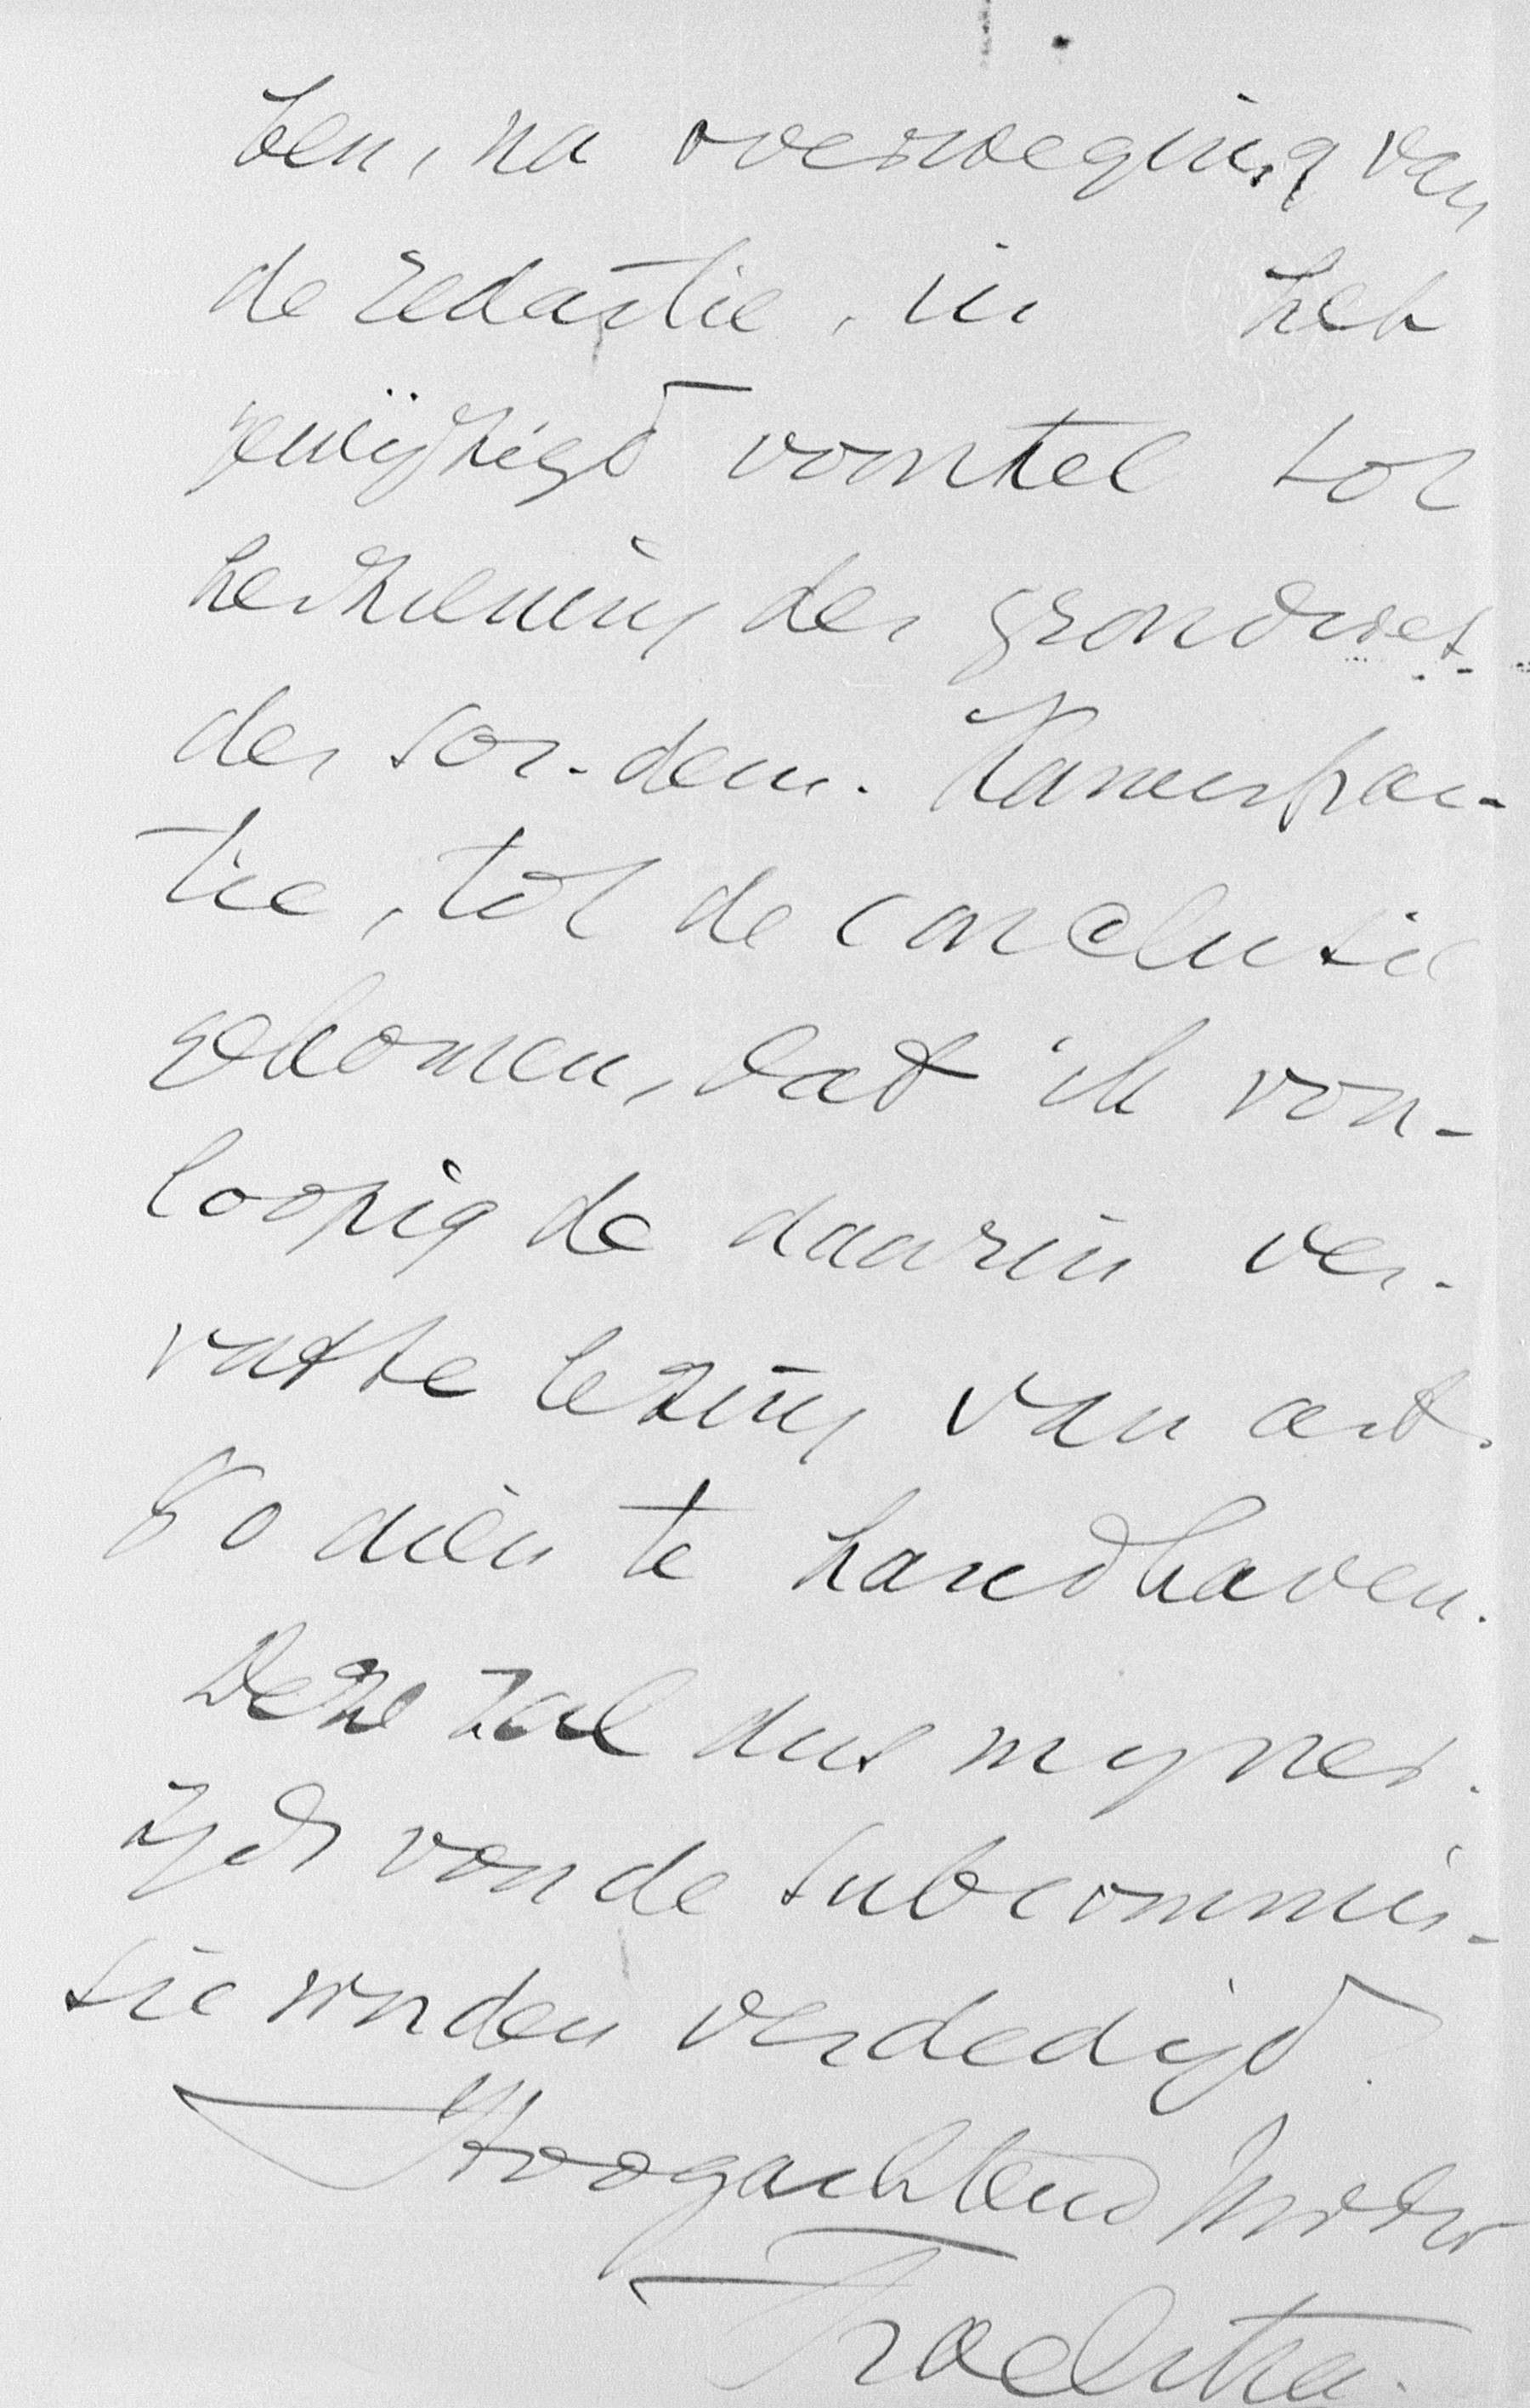 ben, na overweging van
de redactie, in het
gewijzigd voorstel tot
herziening der grondwet
der soc.-dem. Kamerfrac-
tie, tot de conclusie
gekomen, dat ik voor-
loopig de daarin ver-
vatte lezing van art.
80 dien te handhaven.
Deze zal dus mijner-
zijds voor de subcommis-
sie worden verdedigd.
Hoogachtend
Troelstra.